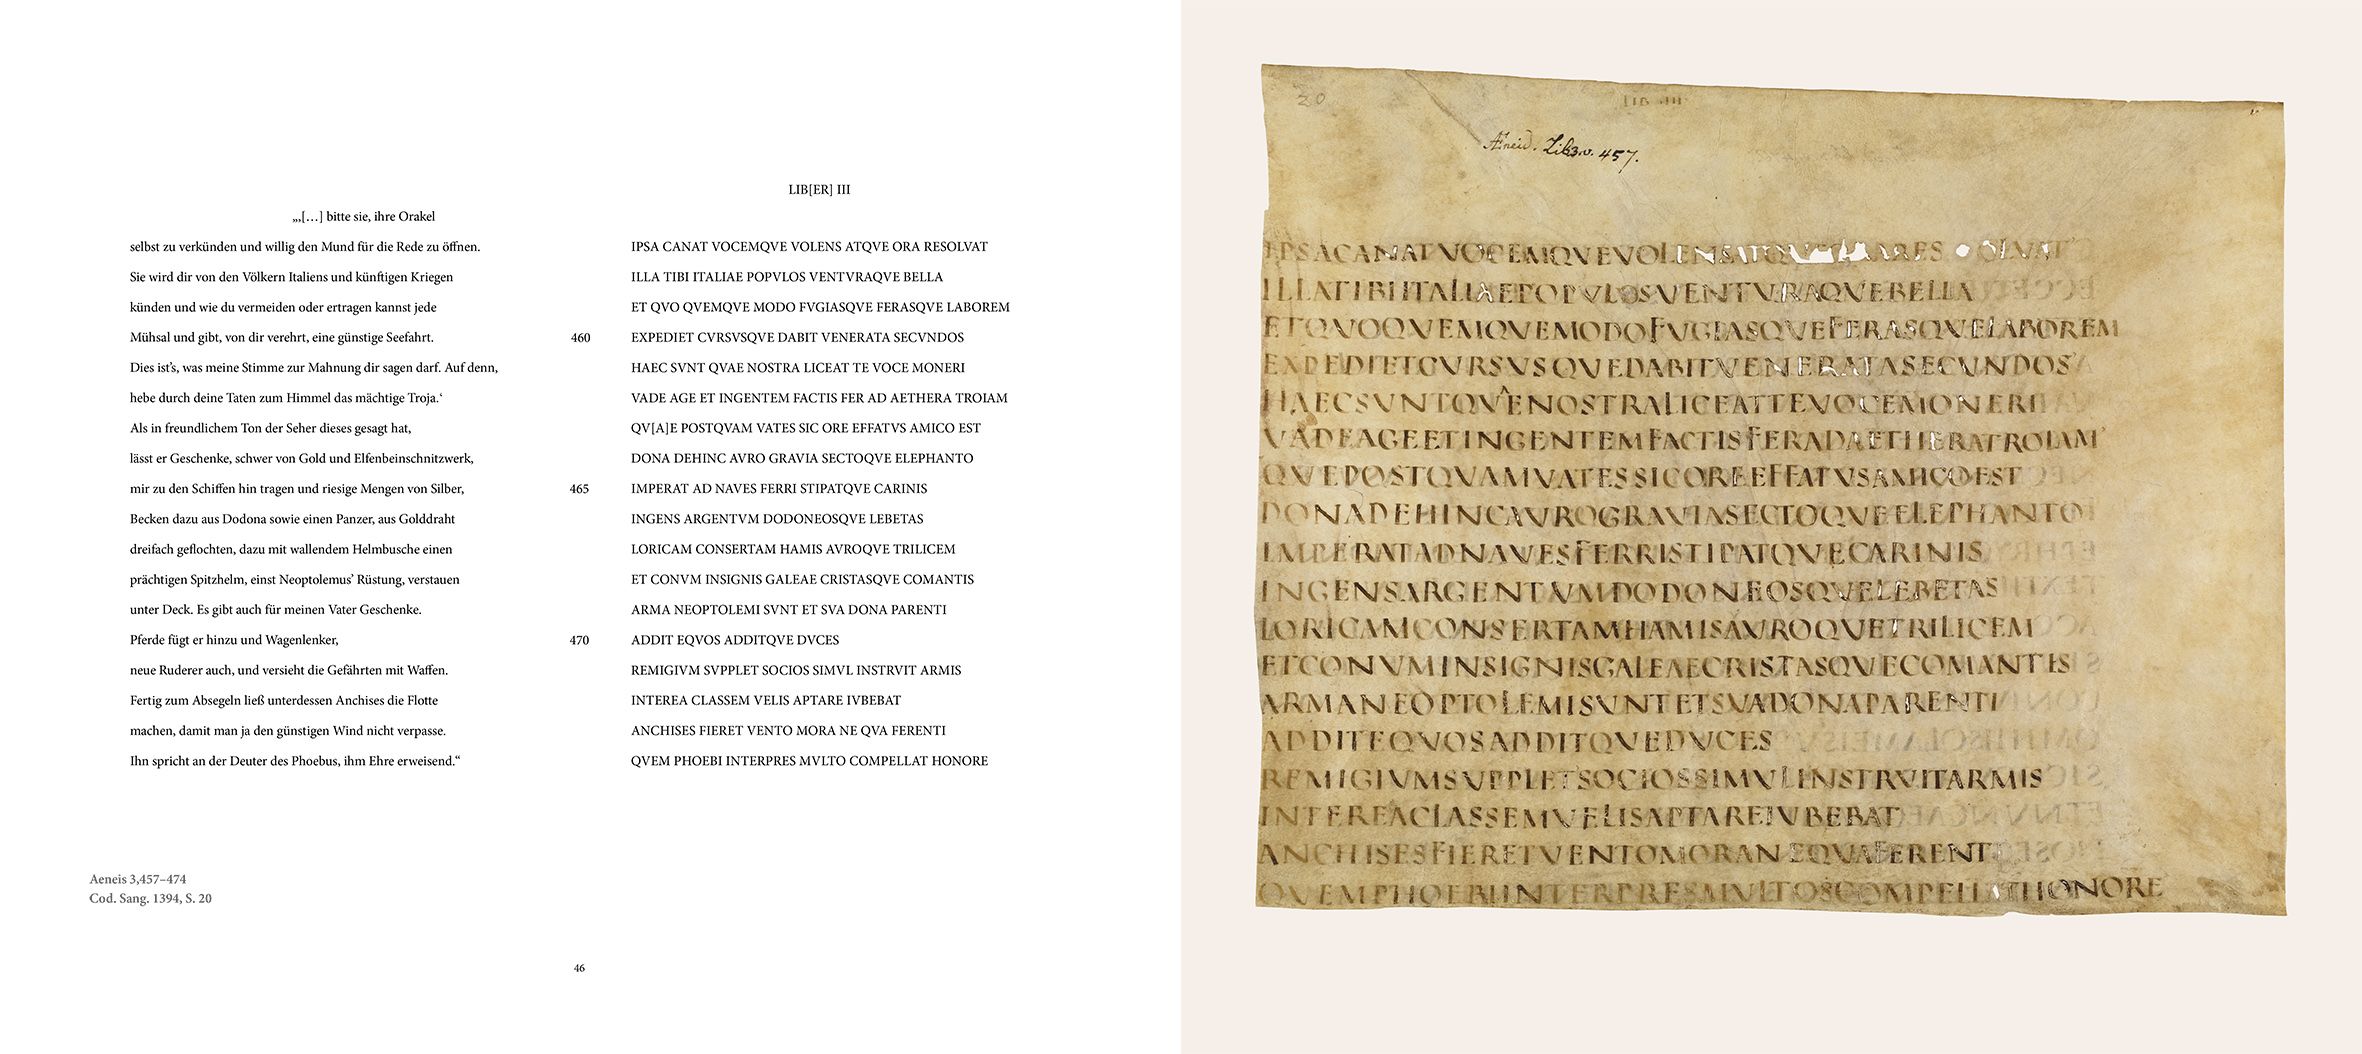 LIB[ER] III
„‚[…] bitte sie, ihre Orakel
selbst zu verkünden und willig den Mund für die Rede zu öffnen.
Sie wird dir von den Völkern Italiens und künftigen Kriegen
künden und wie du vermeiden oder ertragen kannst jede
Mühsal und gibt, von dir verehrt, eine günstige Seefahrt.
Dies ist’s, was meine Stimme zur Mahnung dir sagen darf. Auf denn,
hebe durch deine Taten zum Himmel das mächtige Troja.‘
Als in freundlichem Ton der Seher dieses gesagt hat,
lässt er Geschenke, schwer von Gold und Elfenbeinschnitzwerk,
mir zu den Schiffen hin tragen und riesige Mengen von Silber,
Becken dazu aus Dodona sowie einen Panzer, aus Golddraht
dreifach geflochten, dazu mit wallendem Helmbusche einen
prächtigen Spitzhelm, einst Neoptolemus’ Rüstung, verstauen
unter Deck. Es gibt auch für meinen Vater Geschenke.
Pferde fügt er hinzu und Wagenlenker,
neue Ruderer auch, und versieht die Gefährten mit Waffen.
Fertig zum Absegeln ließ unterdessen Anchises die Flotte
machen, damit man ja den günstigen Wind nicht verpasse.
Ihn spricht an der Deuter des Phoebus, ihm Ehre erweisend.“
IPSA CANAT VOCEMQVE VOLENS ATQVE ORA RESOLVAT
ILLA TIBI ITALIAE POPVLOS VENTVRAQVE BELLA
ET QVO QVEMQVE MODO FVGIASQVE FERASQVE LABOREM
460 EXPEDIET CVRSVSQVE DABIT VENERATA SECVNDOS
HAEC SVNT QVAE NOSTRA LICEAT TE VOCE MONERI
VADE AGE ET INGENTEM FACTIS FER AD AETHERA TROIAM
QV[A]E POSTQVAM VATES SIC ORE EFFATVS AMICO EST
DONA DEHINC AVRO GRAVIA SECTOQVE ELEPHANTO
465 IMPERAT AD NAVES FERRI STIPATQVE CARINIS
INGENS ARGENTVM DODONEOSQVE LEBETAS
LORICAM CONSERTAM HAMIS AVROQVE TRILICEM
ET CONVM INSIGNIS GALEAE CRISTASQVE COMANTIS
ARMA NEOPTOLEMI SVNT ET SVA DONA PARENTI
470 ADDIT EQVOS ADDITQVE DVCES
REMIGIVM SVPPLET SOCIOS SIMVL INSTRVIT ARMIS
INTEREA CLASSEM VELIS APTARE IVBEBAT
ANCHISES FIERET VENTO MORA NE QVA FERENTI
QVEM PHOEBI INTERPRES MVLTO COMPELLAT HONORE
Aeneis 3,457–474
Cod. Sang. 1394, S. 20
46
20
Æneid. Lib3.v. 457.
IPSACANATVOCEMQVEVOLENSATQV
ILLATIBIITALIAEPOPVLOSVENTVRAQVEBELLA
ETQVOQVEMQVEMODOFVGIASQVEFERASQVELABOREM
EXPEDIETCVRSVSQVEDABITVENERATASECVNDOS
HAECSVNTQVENOSTRALICEATTEVOCEMONERI
VADEAGEETINGENTEMFACTISFERADAETHERATROIAM
QVEPOSTQVAMVATESSICOREEFFATVSAMICOEST
DONADEHINCAVROGRAVIASECTOQVEELEPHANTO
IMPERATADNAVESFERRISTIPATQVECARINIS
INGENSARGENTVMDODONEOSQVELEBETAS
LORICAMCONSERTAMHAMISAVROQVETRILICEM
ETCONVMINSIGNISGALEAECRISTASQVECOMANTIS
ARMANEOPTOLEMISVNTETSVADONAPARENTI
ADDITEQVOSADDITQVEDVCES
REMIGIVMSVPPLETSOCIOSSIMVLINSTRVITARMIS
INTEREACLASSEMVELISAPTAREIVBEBAT
ANCHISESFIERETVENTOMORANEQVAFERENTI
QVEMPHOEBIINTERPRESMVLTOSCOMPELLATHONORE